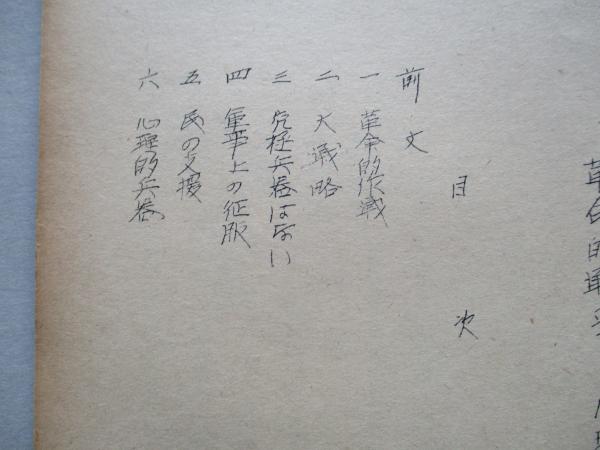 革命的軍事
目次
前文
一 革命的作戦
二 大戦略
三 究極兵器はない
四 軍事上の征服
五 民の支援
六 心理的兵器